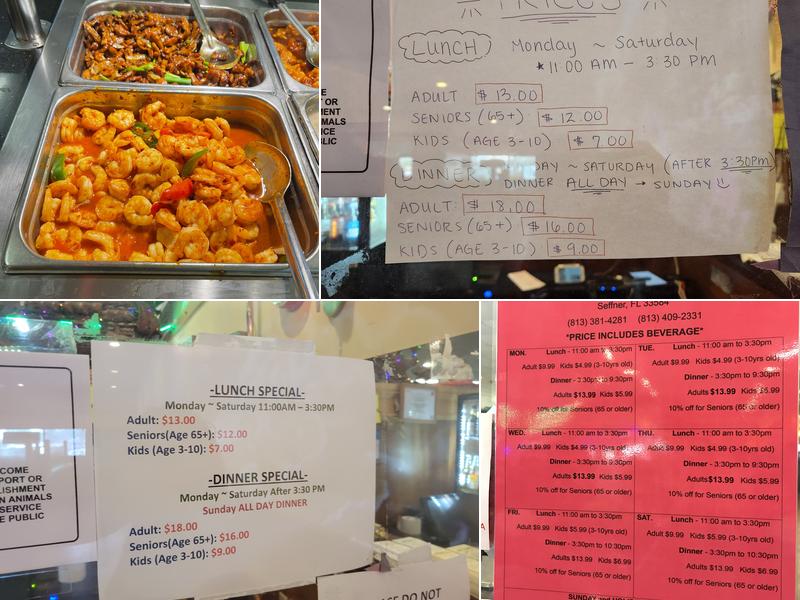 PRICES
LUNCH Monday ~ Saturday
★11:00 AM - 3:30 PM
ADULT $13.00
SENIORS (65+) $12.00
KIDS (AGE 3-10) $7.00
DINNER DAY ~ SATURDAY (AFTER 3:30PM)
DINNER ALL DAY → SUNDAY
ADULT: $18.00
SENIORS (65+) $16.00
KIDS (AGE 3-10) $9.00
OR
LIC
COME
PORT OR
LISHMENT
N ANIMALS
SERVICE
E PUBLIC
-LUNCH SPECIAL-
Monday ~ Saturday 11:00AM – 3:30PM
Adult: $13.00
Seniors(Age 65+): $12.00
Kids (Age 3-10): $7.00
-DINNER SPECIAL-
Monday ~ Saturday After 3:30 PM
Sunday ALL DAY DINNER
Adult: $18.00
Seniors(Age 65+): $16.00
Kids (Age 3-10): $9.00
DO NOT
Seffner, FL 33584
(813) 381-4281 (813) 409-2331
*PRICE INCLUDES BEVERAGE*
MON. Lunch - 11:00 am to 3:30pm
Adult $9.99 Kids $4.99 (3-10yrs old)
Dinner - 3:30pm to 9:30pm
Adults $13.99 Kids $5.99
10% off for Seniors (65 or older)
TUE. Lunch - 11:00 am to 3:30pm
Adult $9.99 Kids $4.99 (3-10yrs old)
Dinner - 3:30pm to 9:30pm
Adults $13.99 Kids $5.99
10% off for Seniors (65 or older)
WED. Lunch - 11:00 am to 3:30pm
Adult $9.99 Kids $4.99 (3-10yrs old)
Dinner - 3:30pm to 9:30pm
Adults $13.99 Kids $5.99
10% off for Seniors (65 or older)
THU. Lunch - 11:00 am to 3:30pm
Adult $9.99 Kids $4.99 (3-10yrs old)
Dinner - 3:30pm to 9:30pm
Adults $13.99 Kids $5.99
10% off for Seniors (65 or older)
FRI. Lunch - 11:00 am to 3:30pm
Adult $9.99 Kids $5.99 (3-10yrs old)
Dinner - 3:30pm to 10:30pm
Adults $13.99 Kids $6.99
10% off for Seniors (65 or older)
SAT. Lunch - 11:00 am to 3:30pm
Adult $9.99 Kids $5.99 (3-10yrs old)
Dinner - 3:30pm to 10:30pm
Adults $13.99 Kids $6.99
10% off for Seniors (65 or older)
SUNDAY and